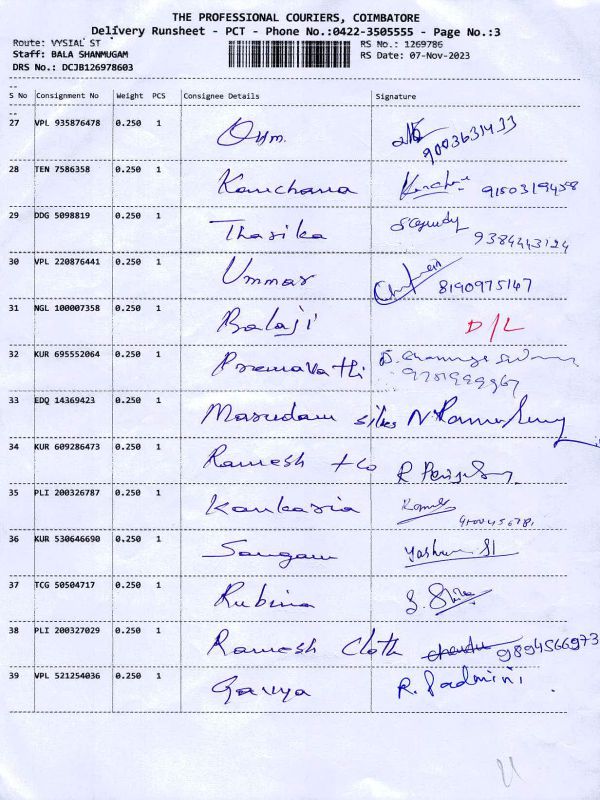 THE PROFESSIONAL COURIERS, COIMBATORE
Delivery Runsheet - PCT - Phone No.:0422-3505555 - Page No.:3
Route: VYSIAL ST RS No.: 1269786
Staff: BALA SHANMUGAM RS Date: 07-Nov-2023
DRS No.: DCJB126978603
S No Consignment No Weight PCS Consignee Details Signature
27 VPL 935876478 0.250 1 9003631433
28 TEN 7586358 0.250 1 Kanchana
29 DDG 5098819 0.250 1 Thasika 9384443124
30 VPL 220876441 0.250 1 Ummar 8190975147
31 NGL 100007358 0.250 1 Balaji D/L
32 KUR 695552064 0.250 1 Premavathi
33 EDQ 14369423 0.250 1 silks
34 KUR 609286473 0.250 1 Ramesh +co
35 PLI 200326787 0.250 1 Kankaria
36 KUR 530646690 0.250 1 Sangam
37 TCG 50504717 0.250 1 Rubina
38 PLI 200327029 0.250 1 Ramesh Cloth 9894566973
39 VPL 521254036 0.250 1 Gavya R. Padmini